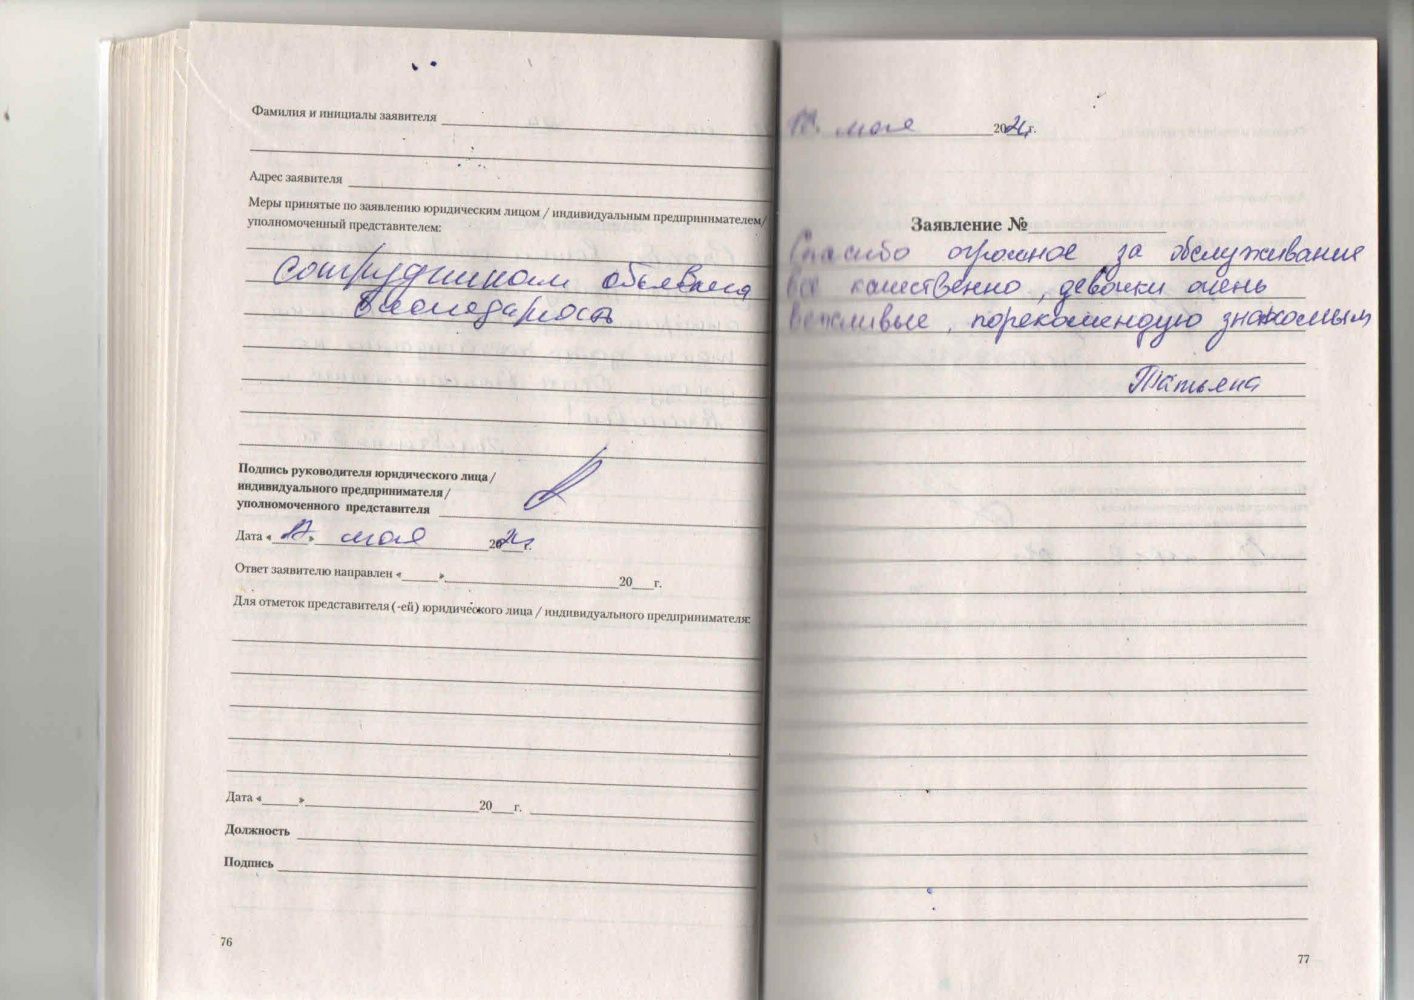 Фамилия и инициалы заявителя
Адрес заявителя
Меры принятые по заявлению юридическим лицом / индивидуальным предпринимателем/
уполномоченный представителем:
сотрудникам объявлена
благодарность
Подпись руководителя юридического лица/
индивидуального предпринимателя/
уполномоченного представителя
Дата « » мая 2024г.
Ответ заявителю направлен «     »               20    г.
Для отметок представителя (-ей) юридического лица / индивидуального предпринимателя:
Дата «     »               20    г.
Должность
Подпись
76
мая 2024г.
Заявление №
Спасибо огромное за обслуживание
все качественно, девочки очень
вежливые, порекомендую знакомым
Татьяна
77